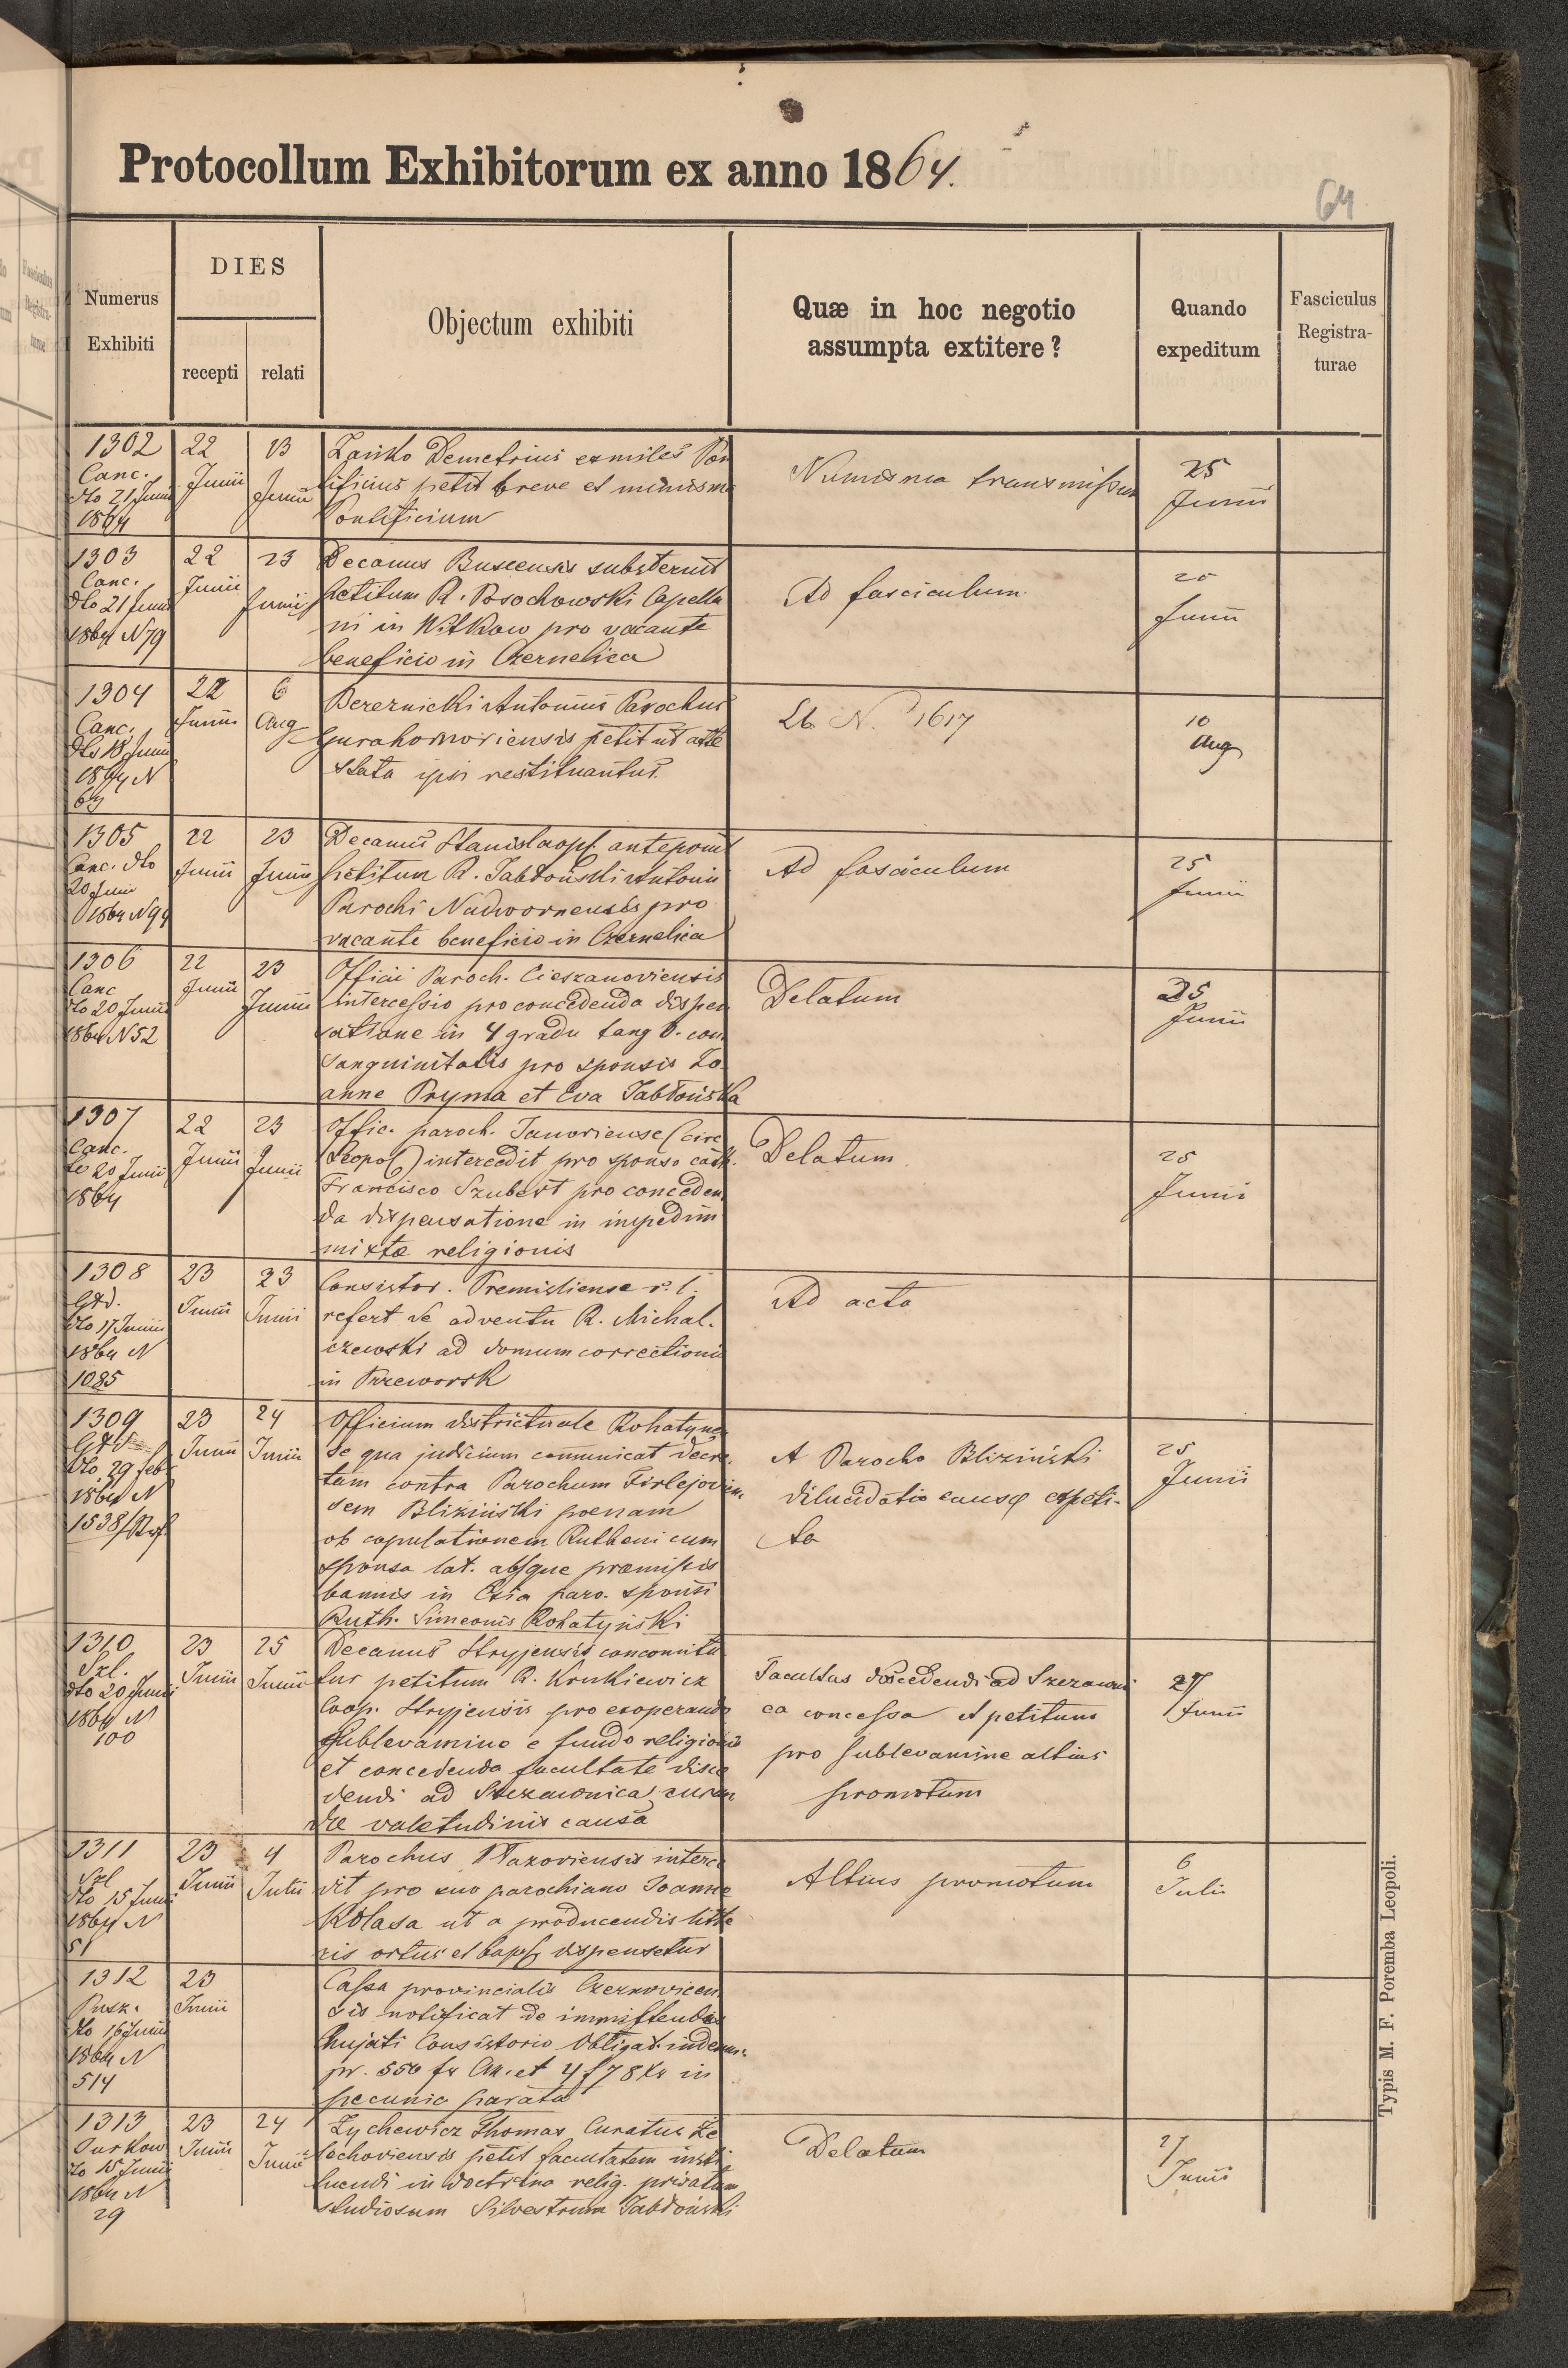 Protocollum Exhibitorum ex anno 1864.
64
Numerus Exhibiti
DIES
recepti
relati
Objectum exhibiti
Quæ in hoc negotio
assumpta extitere?
Quando
expeditum
Fasciculus
Registra-
turae
1302
Canc.
dto 21 Junii
1864
22
Junii
23
Junii
Demetrius exmiles Pon
tificius petit breve et numisma
Pontificium
Numisma transmissum
25
Junii
1303
Canc.
dto 21 Junii
1864 N79
22
Junii
23
Junii
Decanus Buscensis substernit
petitum R. Posochowski Capella
ni in Witkow pro vacante
beneficio in Czernelica
Ad fasciculum
25
Junii
1304
Canc.
dto 18 Junii
1864 N
22
Junii
6
Aug
Bereznicki Antonius Parochus
Gurahomoriensis petit ut atte
stata ipsi restituantur.
N. 1617
10
Aug
1305
Canc. dto
20 Junii
1864 N94
22
Junii
23
Junii
Decanus Stanislaop. anteponit
petitum R. Jabłoński Antonii
Parochi Nadwornensis pro
vacante beneficio in Czernelica
Ad fasciculum
25
Junii
1306
Canc
dto 20 Junii
1864 N52
22
Junii
23
Junii
Officii Paroch. Cieszanoviensis
intercessio pro concedenda dispen
satione in 4 gradu tang 3. con
sanguinitatis pro sponsis Jo
anne Pryma et Eva Jabłońska
Delatum
25
Junii
1307
Canc.
to 20 Junii
1864
22
Junii
23
Junii
Offic. paroch. Janoviense (circ
Leopol) intercedit pro sponso cath.
Francisco Szubert pro conceden
da dispensatione in impedim
mixtæ religionis
Delatum
25
Junii
1308
Gtd.
dto 17 Junii
1864 N
1085
23
Junii
23
Junii
Consistor. Premisliense r. l.
refert de adventu R. Michal.
czewski ad domum correctionis
in Przeworsk
Ad acta
1309
Gtd
dto. 29 feb
1864 N
1538/
23
Junii
24
Junii
Officium districtuale Rohatynen
se qua judicium comunicat decre.
tum contra Parochum Firlejovien.
sem Blizinski poenam
ob copulationem Rutheni cum
sponsa lat. absque præmissis
bannis in Ccsia paro. sponsi
Ruth. Simeonis Rohatyński
A Parocho Bliziński
dilucidatio causæ expeti-
ta
25
Junii
1310
Szl.
dto 20 Junii
1864 N
100
23
Junii
25
Junii
Decanus Stryjensis concomita
tur petitum R. Krukiewicz
Coop. Stryjensis pro exoperando
sublevamine e fundo religionis
et concedenda facultate disce
dendi ad Szczawnica curan
dæ valetudinis causa
Facultas discedendi ad Szczawni
ca concessa et petitum
pro sublevamine altius
promotum
27
Junii
1311
Szl
dto 15 Junii
1864 N
51
23
Junii
4
Julii
Parochus interce
dit pro suo parochiano Joanne
Kolasa ut a producendis litte
ris ortus et bapt. dispensetur
Altius promotum
6
Julii
1312
Pusk.
dto 16 Junii
1864 N
514
23
Junii
Cassa provincialis Czernovicen
sis notificat de immittendis
hujati Consistorio Obligat. indemn.
pr. 550 fr CM. et 4 f 78 Xr in
pecunia parata
1313
Turkow
dto 15 Junii
1864 N
29
23
Junii
24
Junii
Zychewicz Thomas Curatus Ze
lechoviensis petit facultatem insti
tuendi in doctrina relig. privatum
studiosum Silvestrum Jabłoński
Delatum
27
Junii
Typis M. F. Poremba Leopoli.